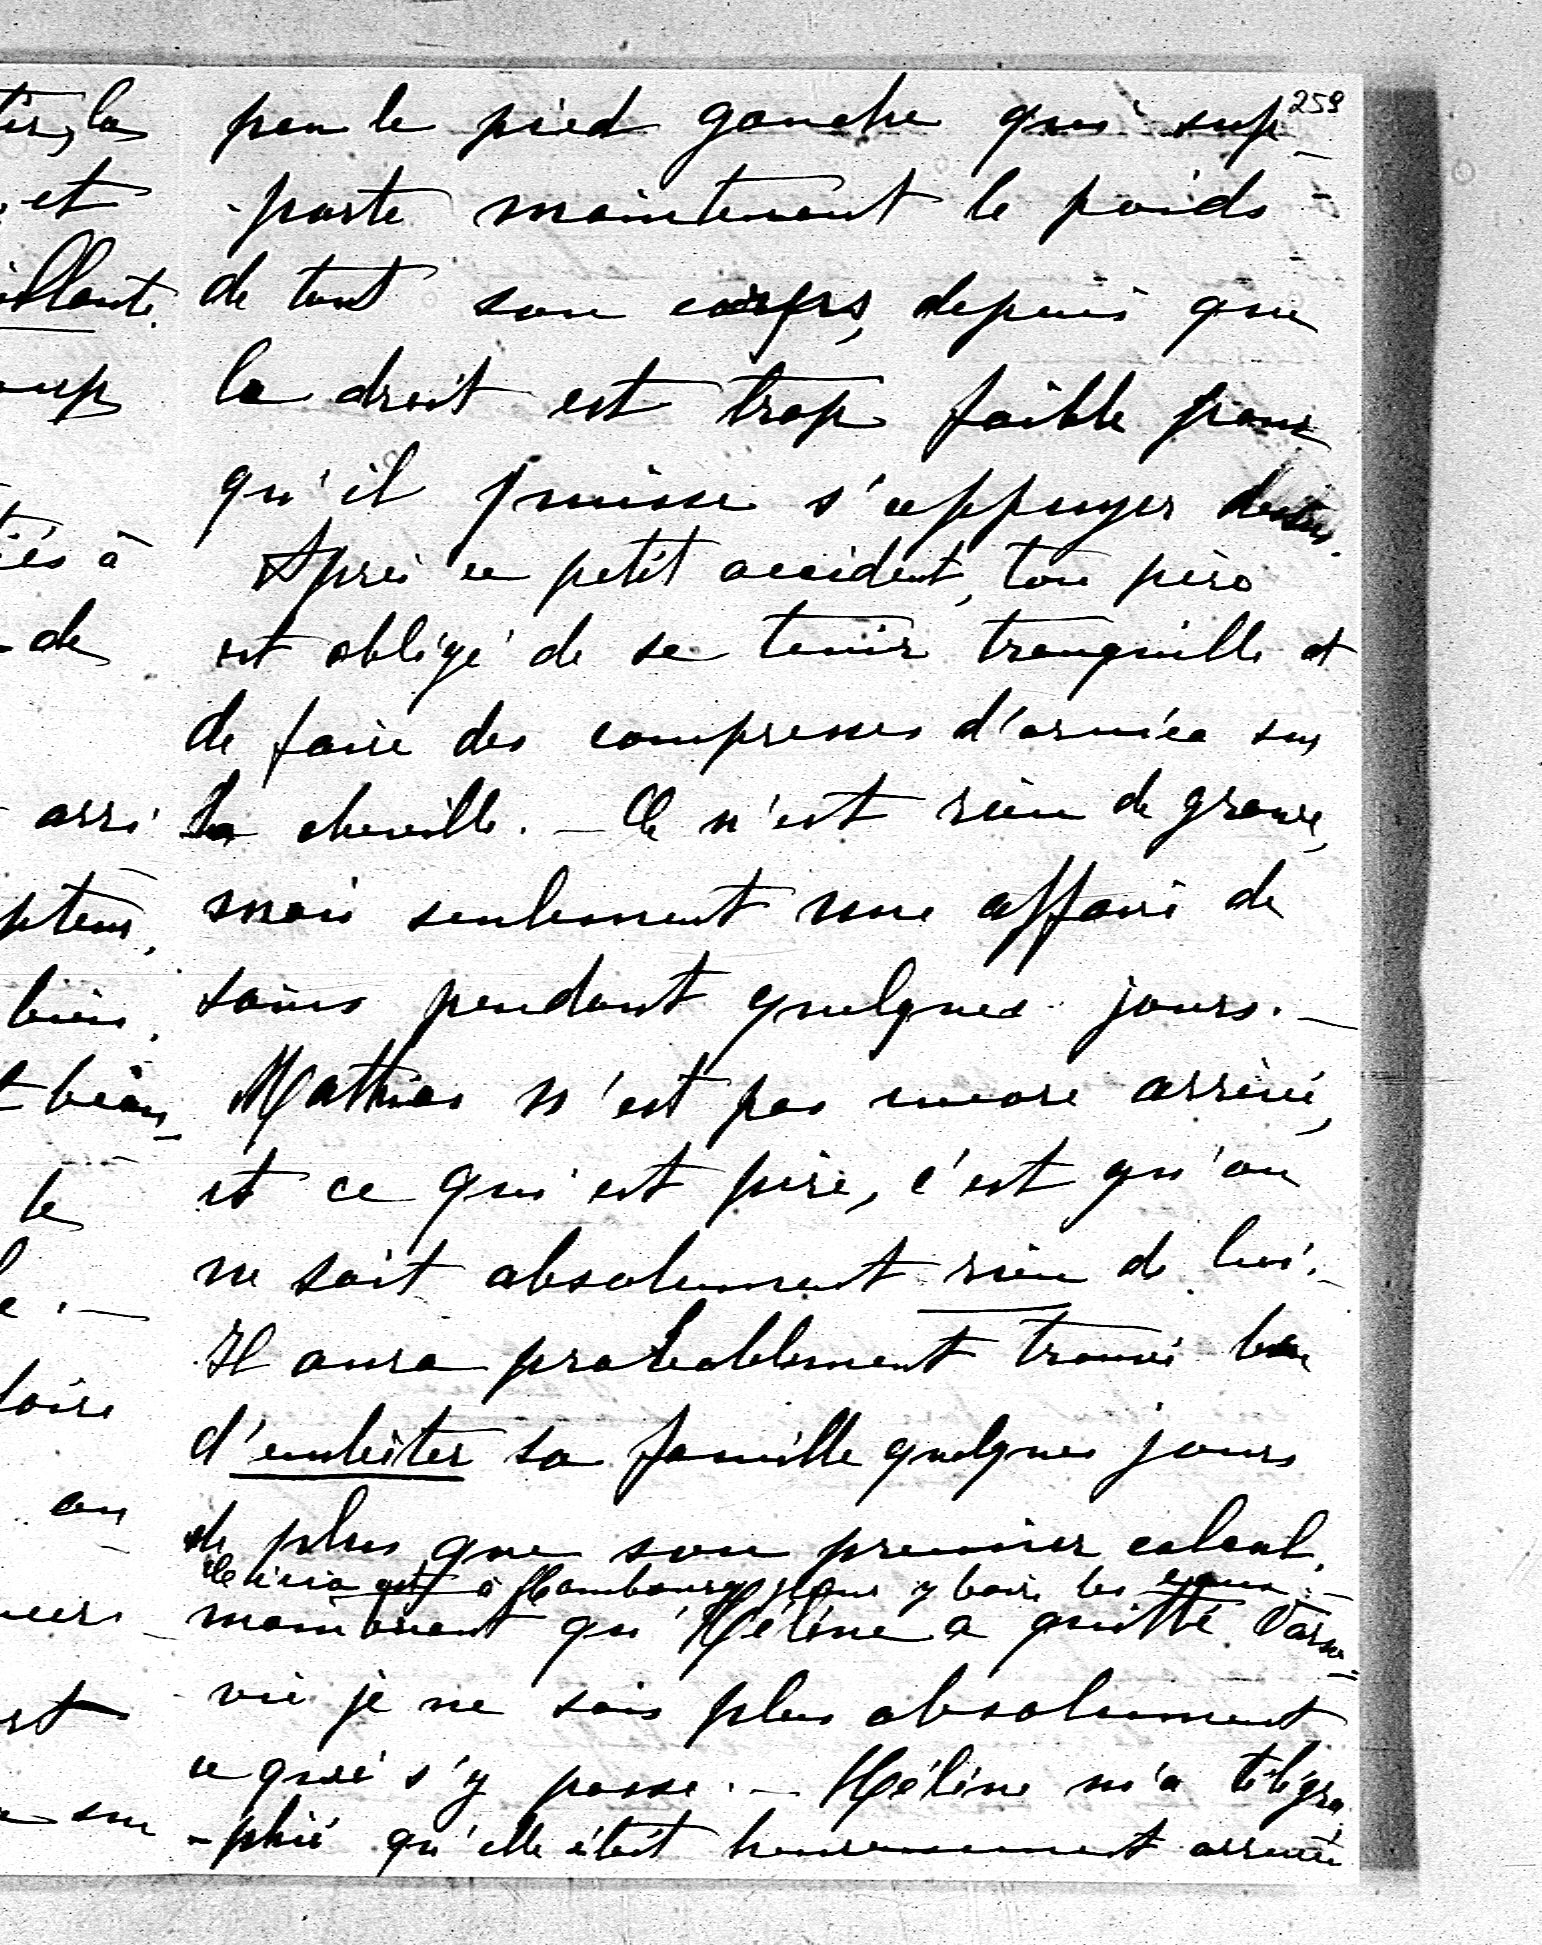 259
peu le pied gauche qui sup-
-porte maintenant le poids
de tout son corps, depuis que
le droit est trop faible pour
qu'il puisse s'appuyer dessus.
Après ce petit accident, ton père
est obligé de se tenir tranquille et
de faire des compresses d'arnica sur
la cheville. — Ce n'est rien de grave,
mais seulement une affaire de
soins pendant quelques jours. —
Mathias n'est pas encore arrivé,
et ce qui est pire, c'est qu'on
ne sait absolument rien de lui. —
Il aura probablement trouvé bon
d'embêter sa famille quelques jours
de plus que son premier calcul.
à Hambourg pour y boire les eaux. —
maintenant qu'Hélène a quitté Varso=
vie je ne sais plus absolument
ce qui s'y passe. — Hélène m'a télégra
-phié qu'elle était heureusement arrivée
tir, la
et
illante.
oup
iés à
de
arri
pteur,
bien,
t bien
le
loire
au
rt
sur